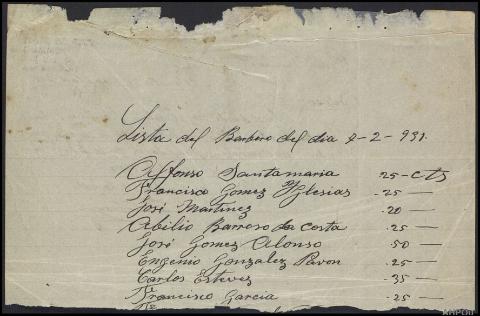 Lista del Barbero del dia 9-2-931.
Alfonso Santamaria .25-cts
Francisco Gomez Yglesias .25—
José Martinez .20—
Abilio Barrero da Costa .25—
José Gomez Alonso .50—
Eugenio Gonzalez Pavon .25—
Carlos Estevez .35—
Francisco Garcia .25—